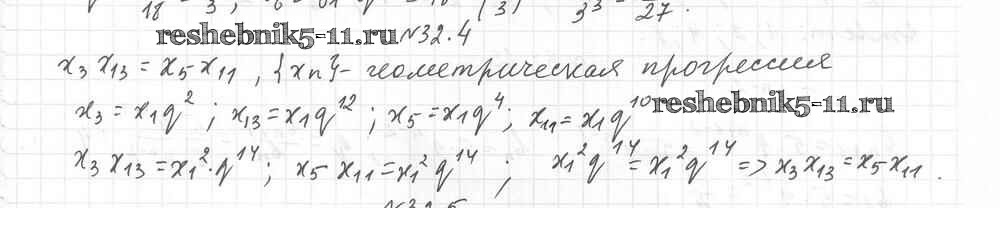 18 3 3³ 27
reshebnik5-11.ru №32.4
x₃ x₁₃ = x₅ x₁₁ , {xn} - геометрическая прогрессия
x₃ = x₁q² ; x₁₃ = x₁q¹² ; x₅ = x₁q⁴ ; x₁₁ = x₁q¹⁰ reshebnik5-11.ru
x₃ x₁₃ = x₁² · q¹⁴ ; x₅ x₁₁ = x₁² q¹⁴ ; x₁² q¹⁴ = x₁² q¹⁴ => x₃ x₁₃ = x₅ x₁₁ .